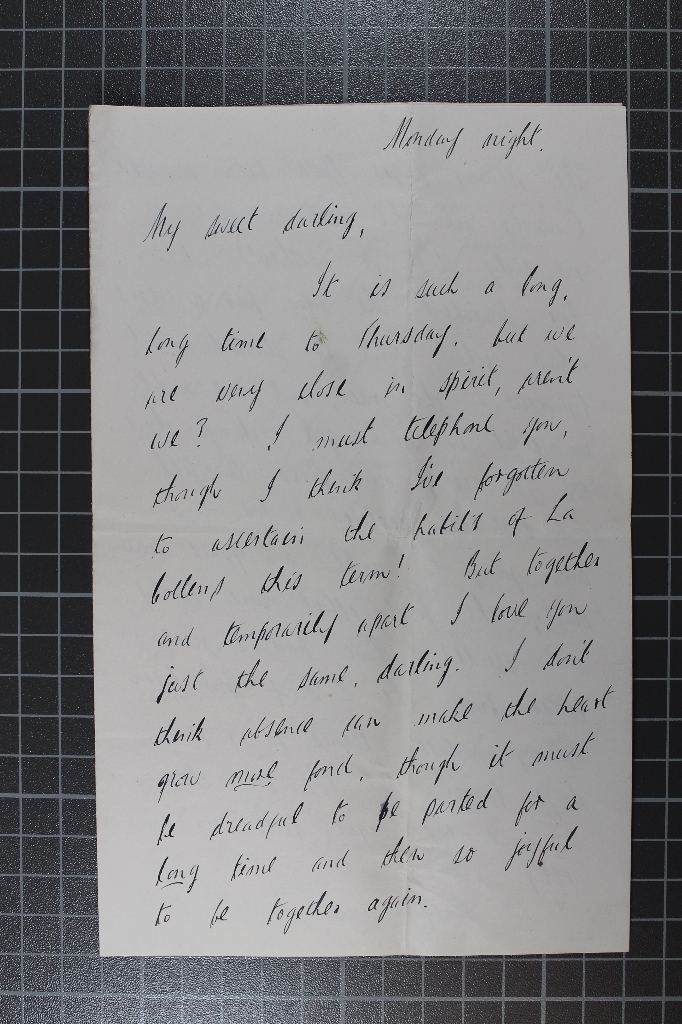 Monday night.
My sweet darling,
It is such a long,
long time to Thursday, but we
are very close in spirit, aren't
we? I must telephone you,
though I think I've forgotten
to ascertain the habits of La
this term! But together
and temporarily apart I love you
just the same, darling. I don't
think absence can make the heart
grow more fond, though it must
be dreadful to be parted for a
long time and then so joyful
to be together again.